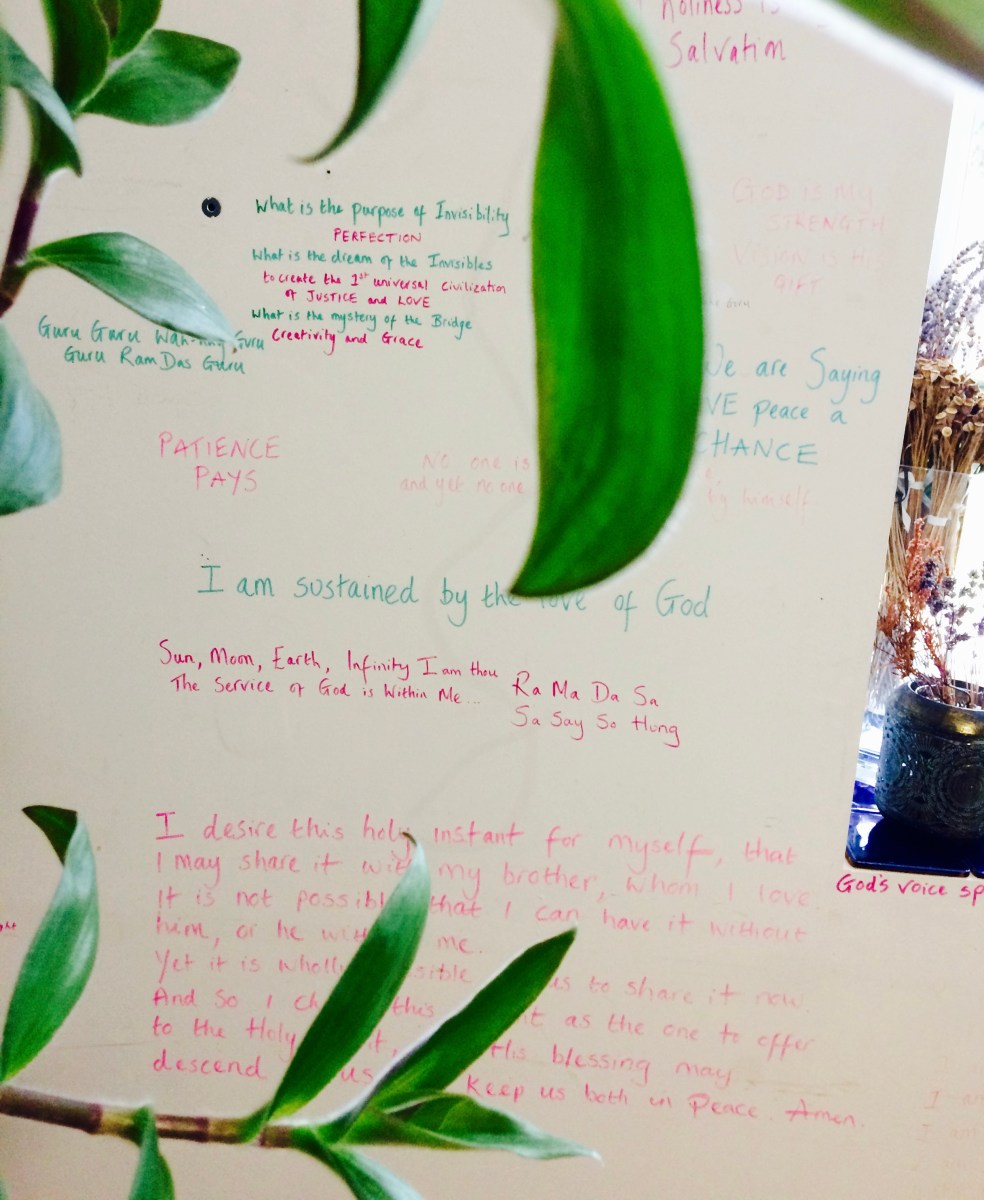 holiness is
Salvation
What is the purpose of Invisibility
PERFECTION
What is the dream of the Invisibles
to create the 1st universal Civilization
of JUSTICE and LOVE
What is the mystery of the Bridge
Creativity and Grace
Guru Guru Wah Guru
Guru Ram Das Guru
GOD IS MY
STRENGTH
VISION IS
GIFT
We are Saying
VE peace a
CHANCE
PATIENCE
PAYS
No one is
and yet no one
by himself
I am sustained by the love of God
Sun, Moon, Earth, Infinity I am thou
The Service of God is Within Me...
Ra Ma Da Sa
Sa Say So Hung
I desire this holy instant for myself, that
I may share it with my brother, whom I love.
It is not possible that I can have it without
him, or he me.
Yet it is wholly us to share it now.
And so I this as the one to offer
to the Holy His blessing may
descend us Keep us both in Peace. Amen.
God's voice sp